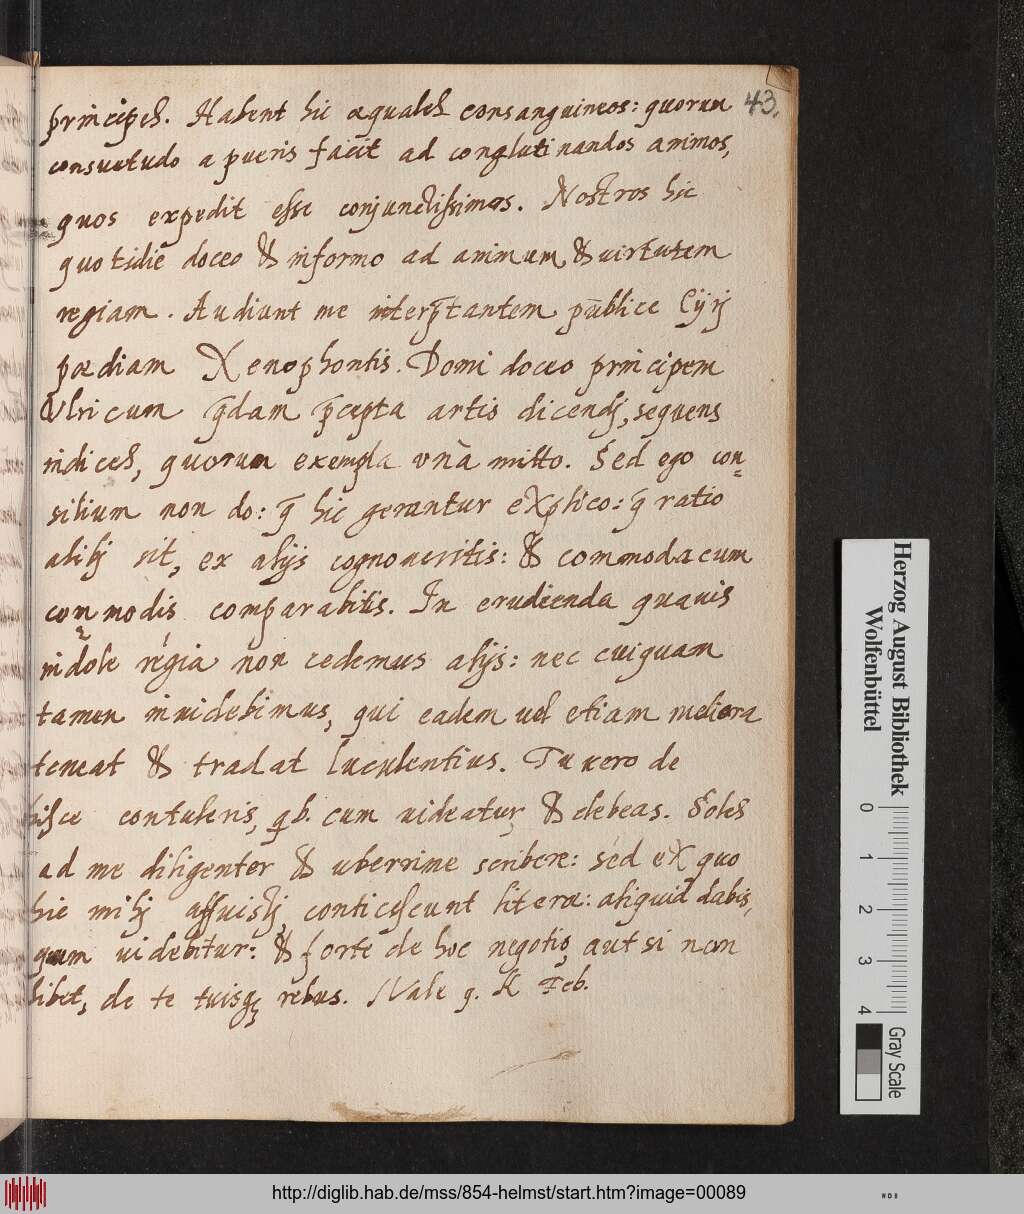 43.
principes. Habent hic æquales consanguineos: quorum
consuetudo a pueris facit ad conglutinandos animos,
quos expedit esse conjunctissimos. Nostros hic
quotidie doceo & informo ad animum & uirtutem
regiam. Audiunt me interp̄tantem publice Cÿrj
pædiam Xenophontis. Domi doceo principem
Vlricum q̄dam p̄cepta artis dicendj, sequens
indices, quorum exempla vnà mitto. Sed ego con=
silium non do: q̄ hic gerantur explico: q̄ ratio
alibj sit, ex alijs cognoueritis: & commoda cum
commodis comparabitis. In erudienda quauis
indole regia non cedemus alijs: nec cuiquam
tamen inuidebimus, qui eadem uel etiam meliora
teneat & tradat luculentius. Tu uero de
hisce contuleris, qb. cum uideatur, & debeas. Soles
ad me diligenter & uberrime scribere: sed ex quo
hic mihj affuistj conticescunt literæ: aliquid dabis,
quum uidebitur: & forte de hoc negotio, aut si non
libet, de te tuisq; rebus. Vale 9. K Feb.
Herzog August Bibliothek
Wolfenbüttel
0 1 2 3 4
Gray Scale
http://diglib.hab.de/mss/854-helmst/start.htm?image=00089